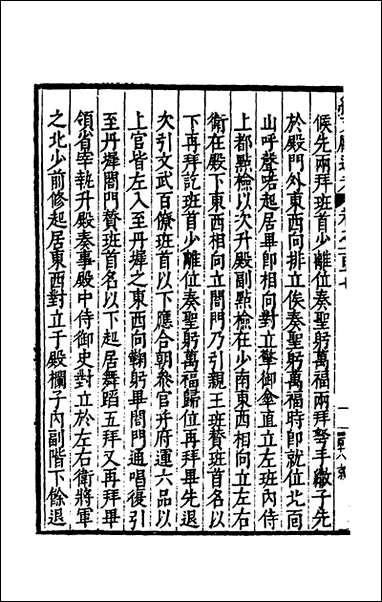 候先兩拜班首少離位奏聖躬萬福兩拜弩手繖子先
於殿門外東西向排立俟奏聖躬萬福時卽就位北面
山呼聲喏起居畢卽相向對立擎御傘直立左班內侍
上都點檢以次升殿副點檢在少南東西相向立左右
衛在殿下東西相向立閤門乃引親王班贊班首名以
下再拜訖班首少離位奏聖躬萬福歸位再拜畢先退
次引文武百僚班首以下應合朝參官并府運六品以
上官皆左入至丹墀之東西向鞠躬畢閤門通唱復引
至丹墀閤門贊班首名以下起居舞蹈五拜又再拜畢
領省宰執升殿奏事殿中侍御史對立於左右衛將軍
之北少前修起居東西對立于殿欄子內副階下餘退